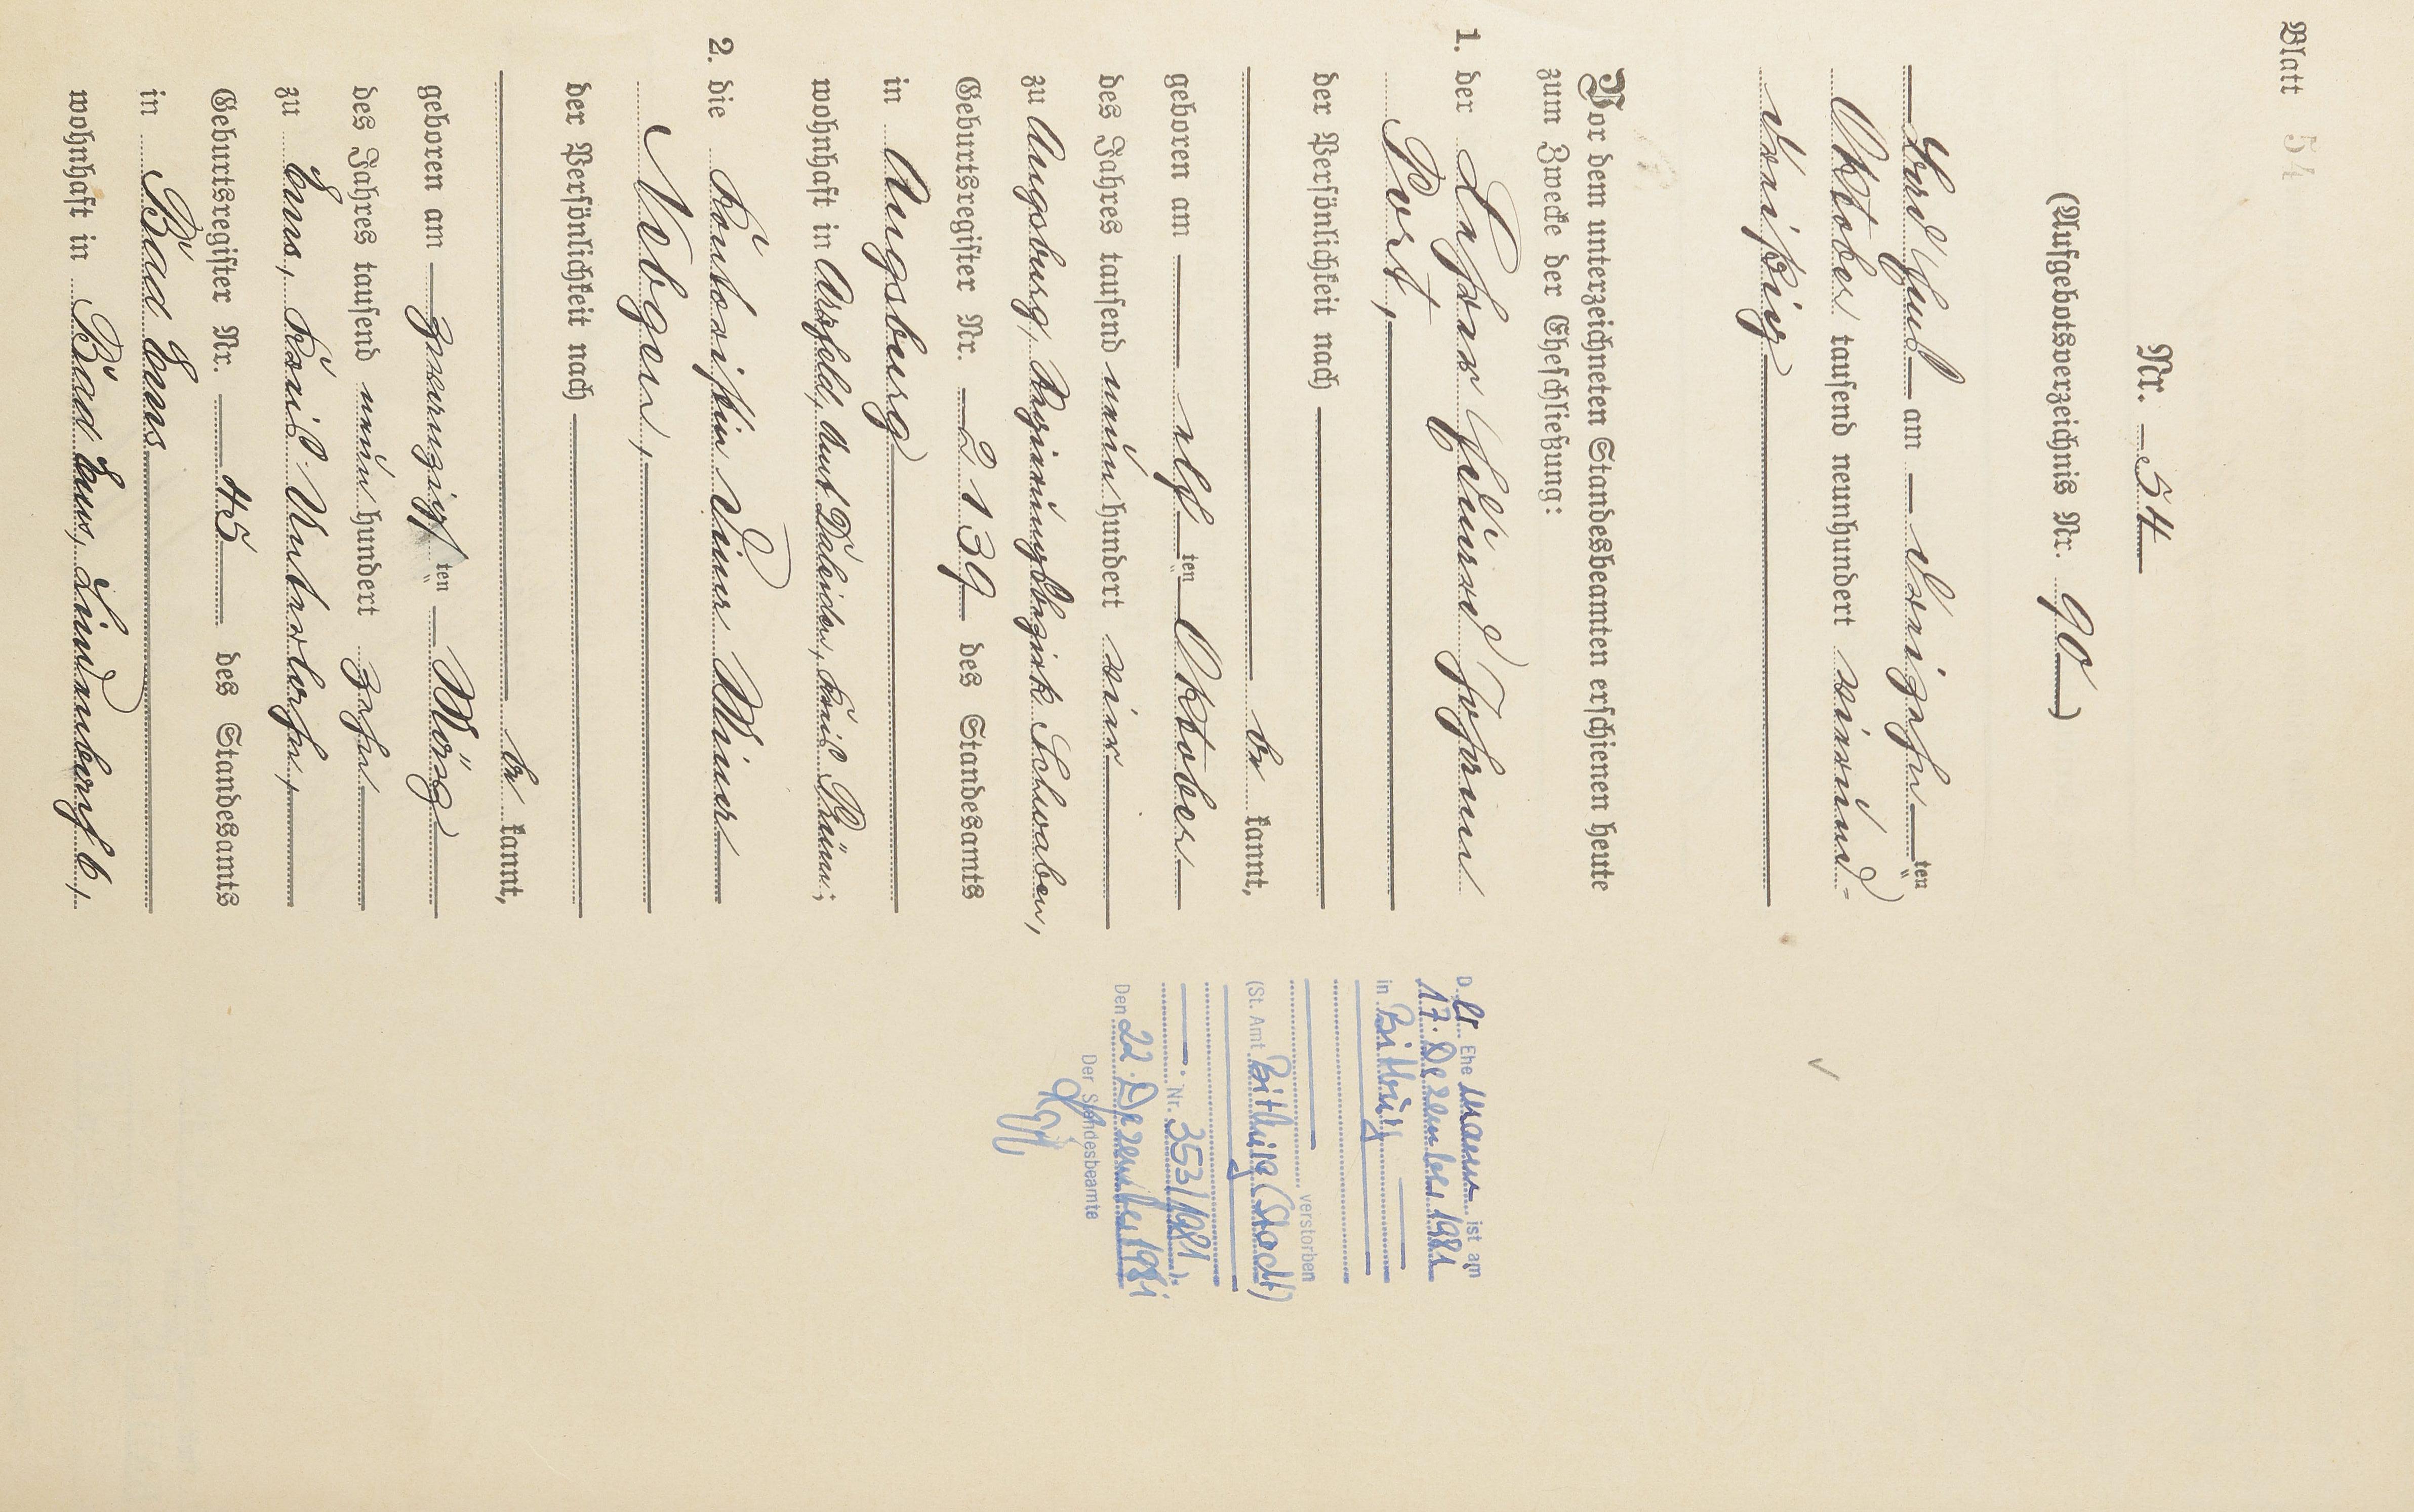 Blatt 54
Nr. 54
(Aufgebotsverzeichnis Nr. 90)
Bad Ems am dreizehnten
Oktober tausend neunhundert vierund-
dreißig
Vor dem unterzeichneten Standesbeamten erschienen heute
zum Zwecke der Eheschließung:
1. der Lehrer Eduard Johann
Port,
der Persönlichkeit nach
be kannt,
geboren am elf ten Oktober
des Jahres tausend neun hundert vier
zu Augsburg, Regierungsbezirk Schwaben,
Geburtsregister Nr. 2139 des Standesamts
in Augsburg
wohnhaft in Arzfeld, Amt Daleiden, Kreis Prüm;
2. die Kontoristin Anna Maria
Nebgen,
der Persönlichkeit nach
be kannt,
geboren am zwanzigsten März
des Jahres tausend neun hundert zehn
zu Ems, Kreis Unterlahn,
Geburtsregister Nr. 45 des Standesamts
in Bad Ems
wohnhaft in Bad Ems, Lindenbach 6,
D er Ehe mann ist am
17. Dezember 1981
in Bitburg
verstorben
(St. Amt Bitburg (Stadt)
Nr. 353/1981).
Den 22. Dezember 1981
Der Standesbeamte